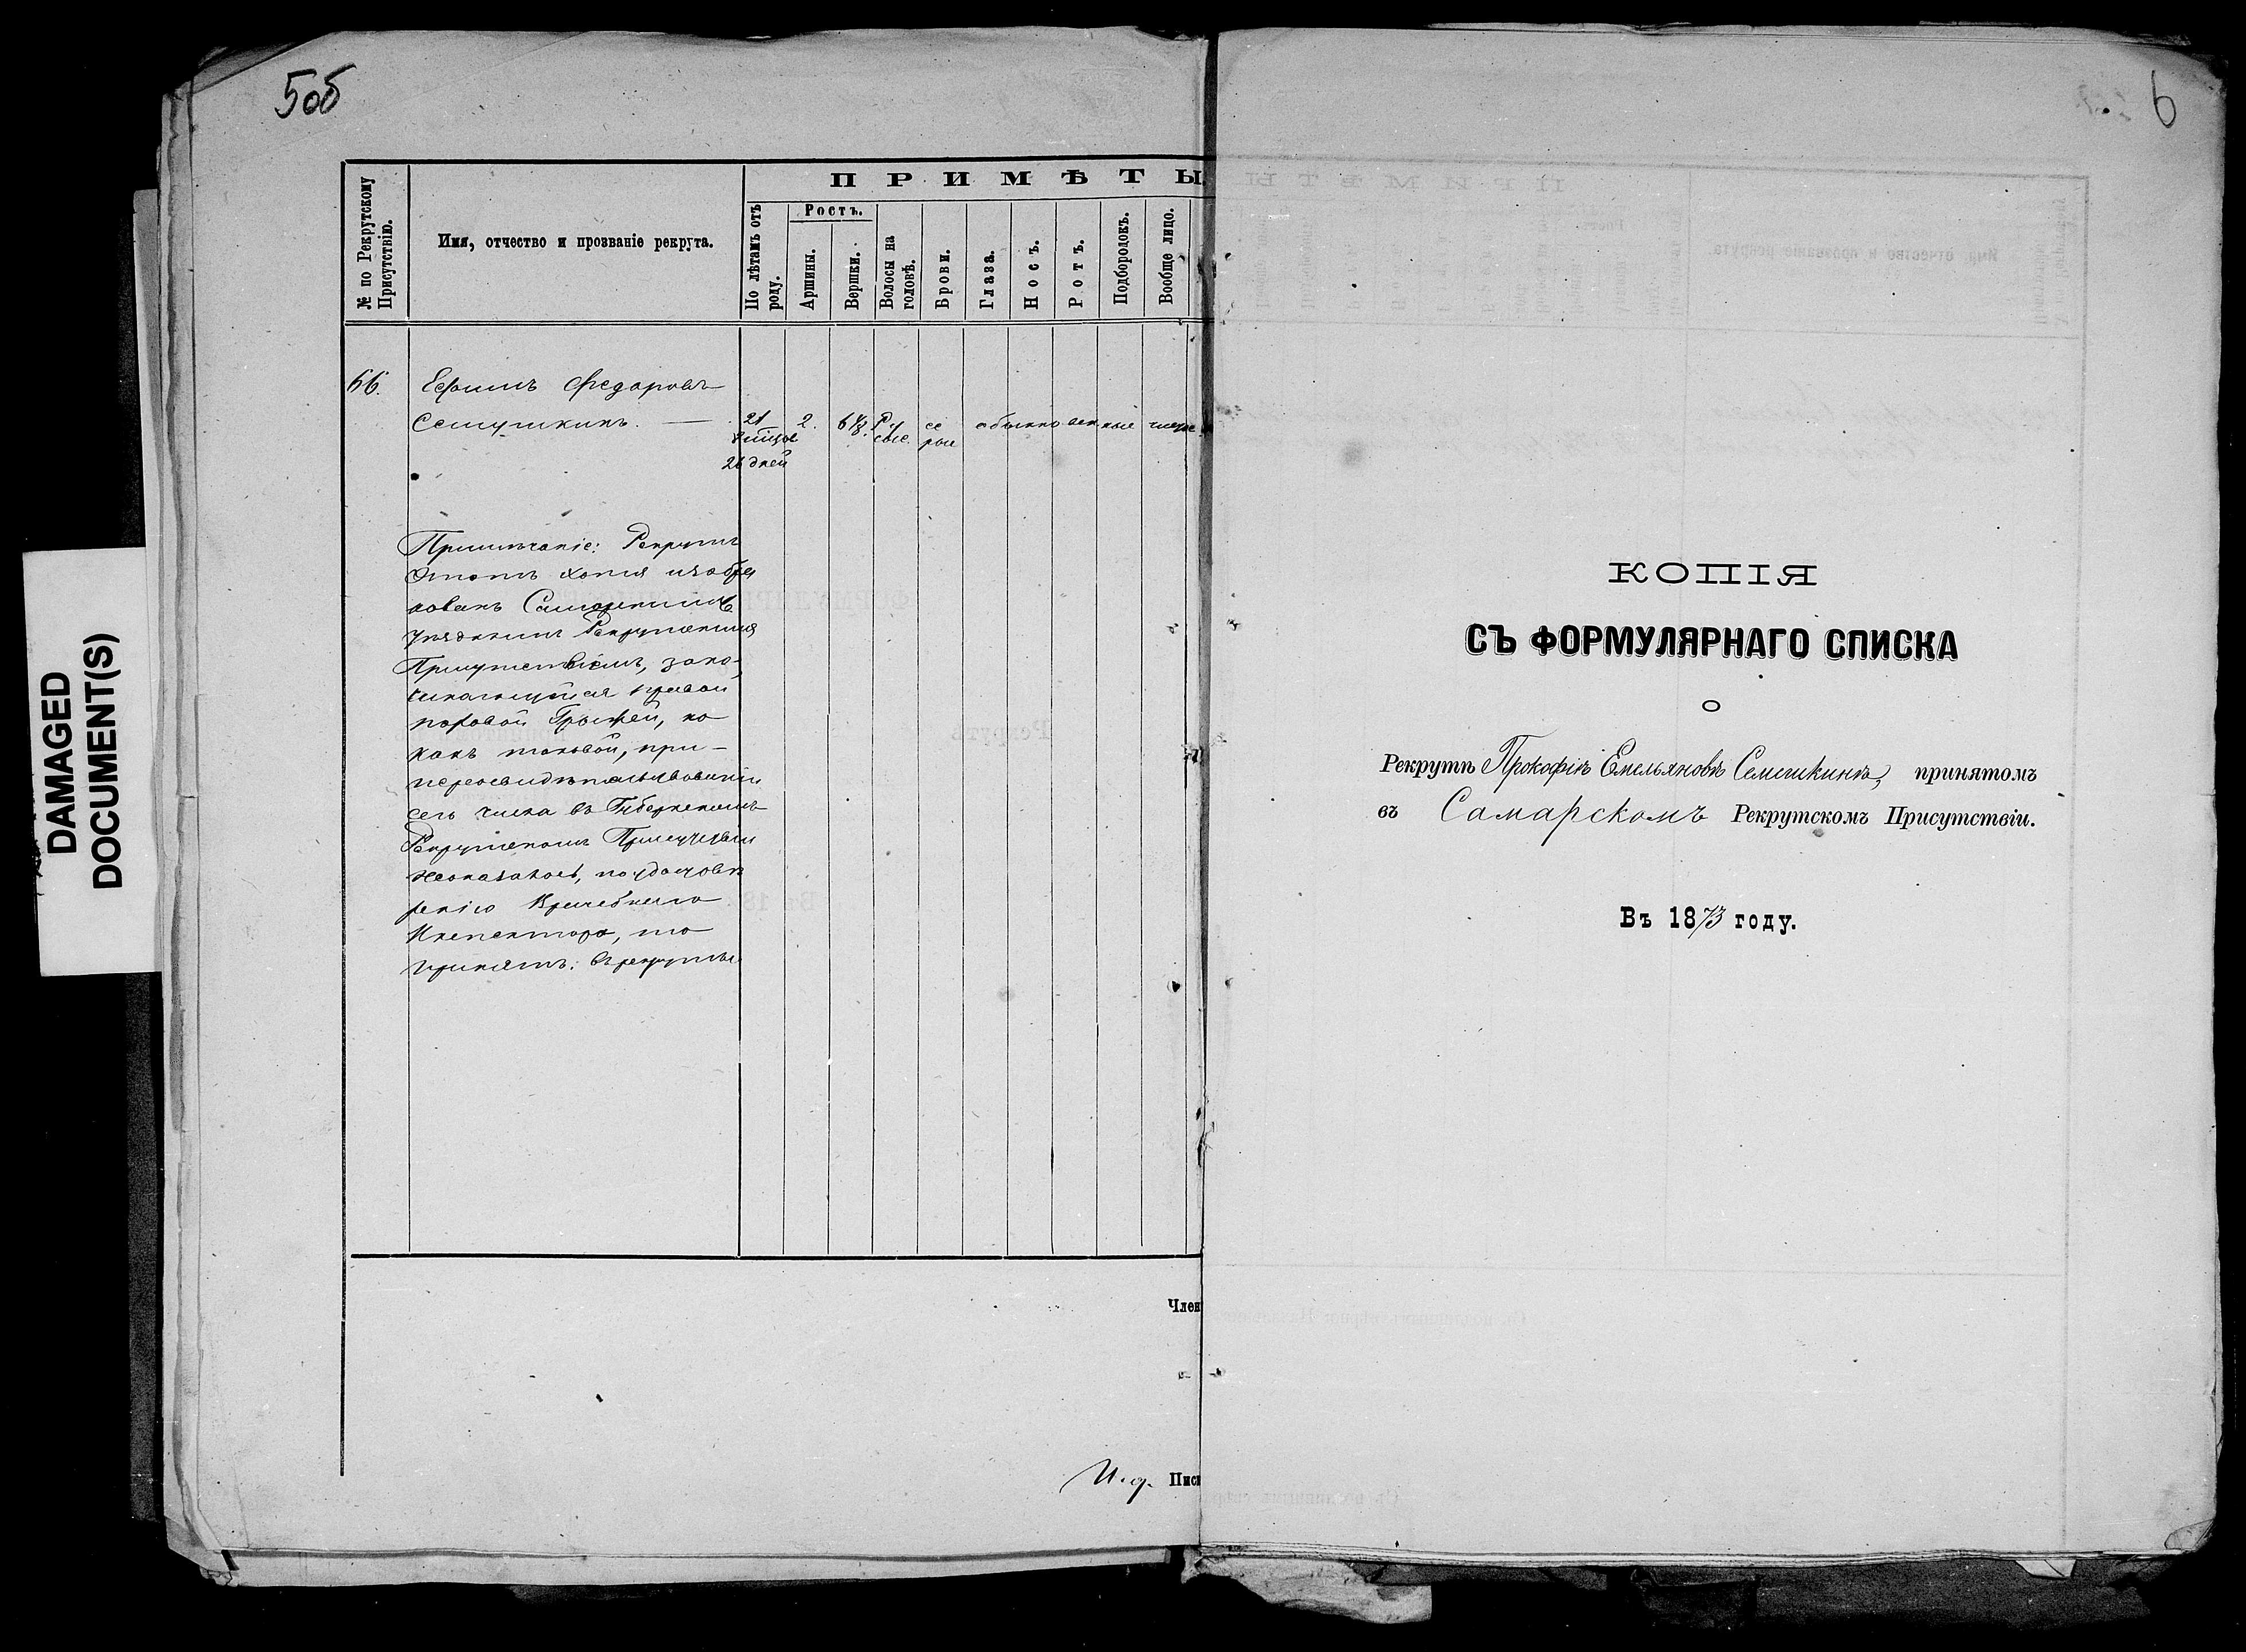 5об
№ по Рекрутскому
Присутствію.
Имя, отчество и прозваніе рекрута.
ПРИМѢТЫ
По лѣтамъ отъ
роду.
Ростъ.
Аршины.
Вершки.
Волосы на
головѣ.
Брови.
Глаза.
Носъ.
Ротъ.
Подбородокъ.
Вообще лицо.
66.
Ефимъ Федоровъ
Семушкинъ.
21
26 дней
2.
6⅛
Ру
сые.
се
рые
обыкновенные
чистое
Примѣчаніе: Рекрутъ
Этотъ хотя и забра
кованъ Самарскимъ
уѣзднымъ Рекрутскимъ
Присутствіемъ, зако
правой
паховой Грыжей, но
какъ таковой, при
переосвидѣтельствованіи
сего числа въ Губернскомъ
Рекрутскомъ Присутствіи
неоказалось, по удостовѣ
ренію Врачебнаго
Инспектора, то
принятъ: въ рекруты
Член
И. д. Писк
DAMAGED
DOCUMENT(S)
6
КОПІЯ
СЪ ФОРМУЛЯРНАГО СПИСКА
О
Рекрутѣ Прокофіѣ Емельяновѣ Семешкинѣ, принятомъ
въ Самарскомъ Рекрутскомъ Присутствіи.
Въ 1873 году.